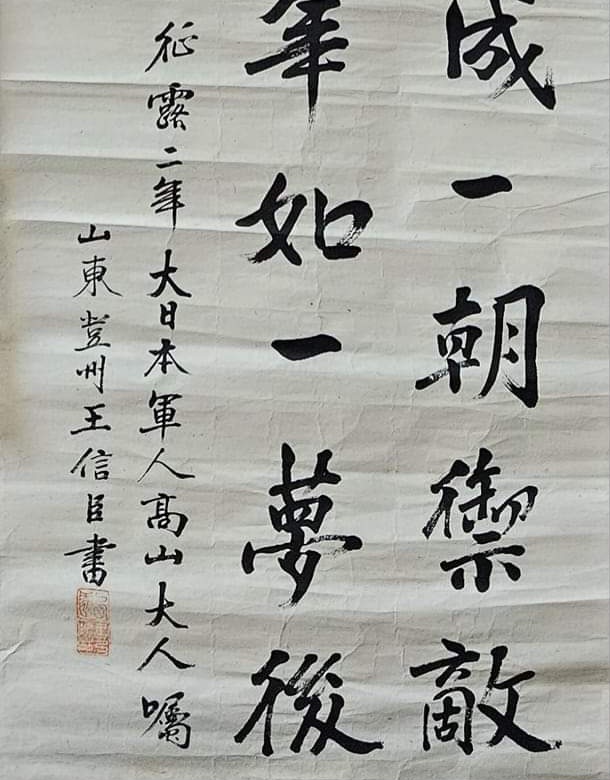 成一朝禦敵
年如一夢後
征露二年大日本軍人高山大人囑
山東登州王信臣書